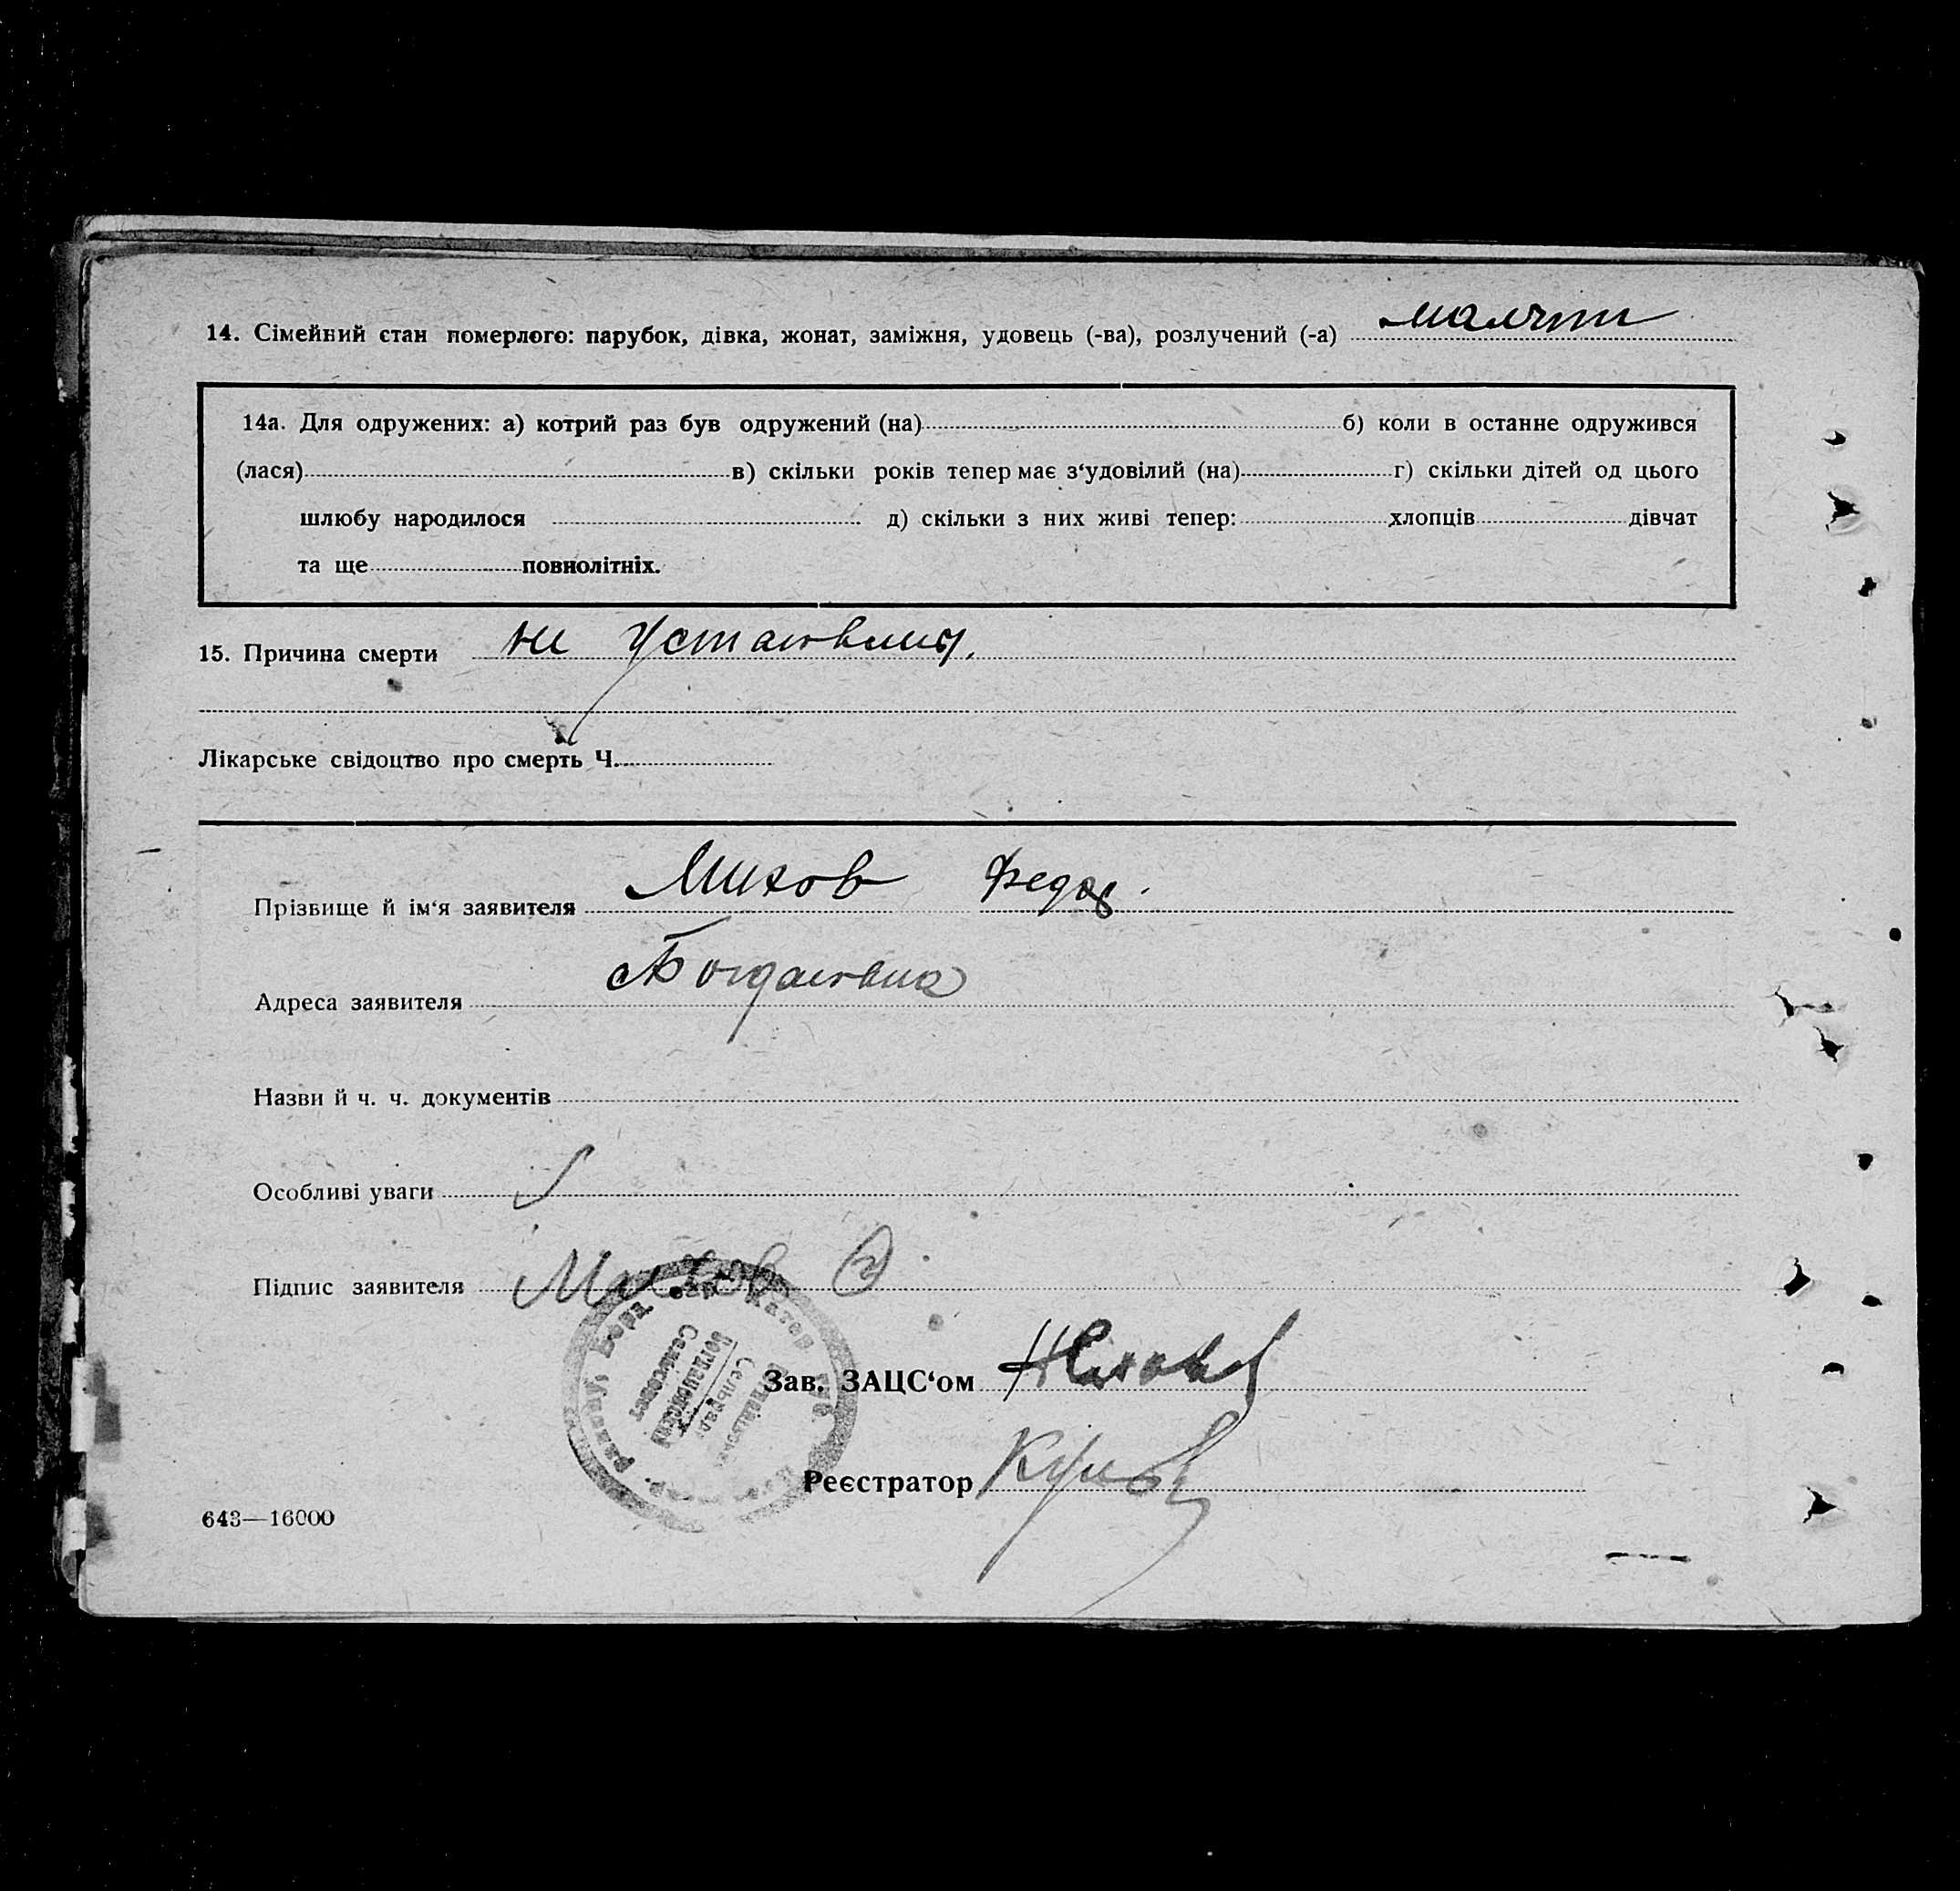 14. Сімейний стан померлого: парубок, дівка, жонат, заміжня, удовець (-ва), розлучений (-а)
14а. Для одружених: а) котрий раз був одружений (на) б) коли в останне одружився
(лася) в) скільки років тепер має з‘удовілий (на) г) скільки дітей од цього
шлюбу народилося д) скільки з них живі тепер: хлопців дівчат
та ще повнолітніх.
15. Причина смерти не
Лікарське свідоцтво про смерть Ч.
Прізвище й ім‘я заявителя Михов Федор
Адреса заявителя Богдановка
Назви й ч. ч. документів
Особливі уваги
Підпис заявителя Михов Ф
Зав. ЗАЦС‘ом
Реєстратор
643—16000